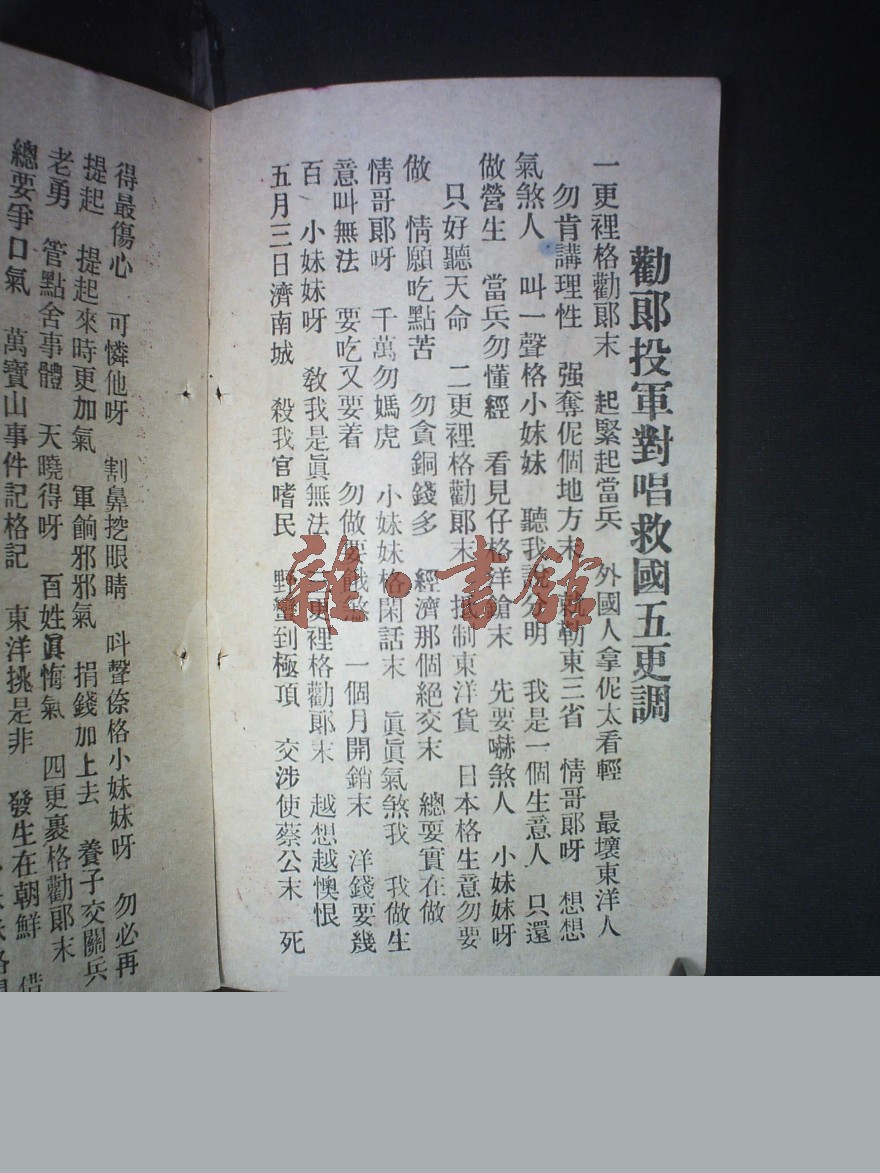 勸郎投軍對唱救國五更調
一更裡格勸郎末 起緊起當兵 外國人拿伲太看輕 最壞東洋人
勿肯講理性 强奪伲個地方末 就勒東三省 情哥郎呀 想想
氣煞人 叫一聲格小妹妹 聽我說分明 我是一個生意人 只還
做營生 當兵勿懂經 看見仔格洋鎗末 先要嚇煞人 小妹妹呀
只好聽天命 二更裡格勸郎末 抵制東洋貨 日本格生意勿要
做 情願吃點苦 勿貪銅錢多 經濟那個絕交末 總要實在做
情哥郎呀 千萬勿媽虎 小妹妹格閑話末 眞眞氣煞我 我做生
意叫無法 要吃又要着 勿做要餓煞 一個月開銷末 洋錢要幾
百 小妹妹呀 敎我是眞無法 三更裡格勸郎末 越想越懊恨
五月三日濟南城 殺我官嗜民 野蠻到極頂 交涉使蔡公末 死
得最傷心 可憐他呀 割鼻挖眼睛 呌聲倷格小妹妹呀 勿必再
提起 提起來時更加氣 軍餉邪邪氣 捐錢加上去 養子交關兵
老勇 管點舍事體 天曉得呀 百姓眞悔氣 四更裏格勸郎末
總要爭口氣 萬寶山事件記格記 東洋挑是非 發生在朝鮮 借
雜·書館